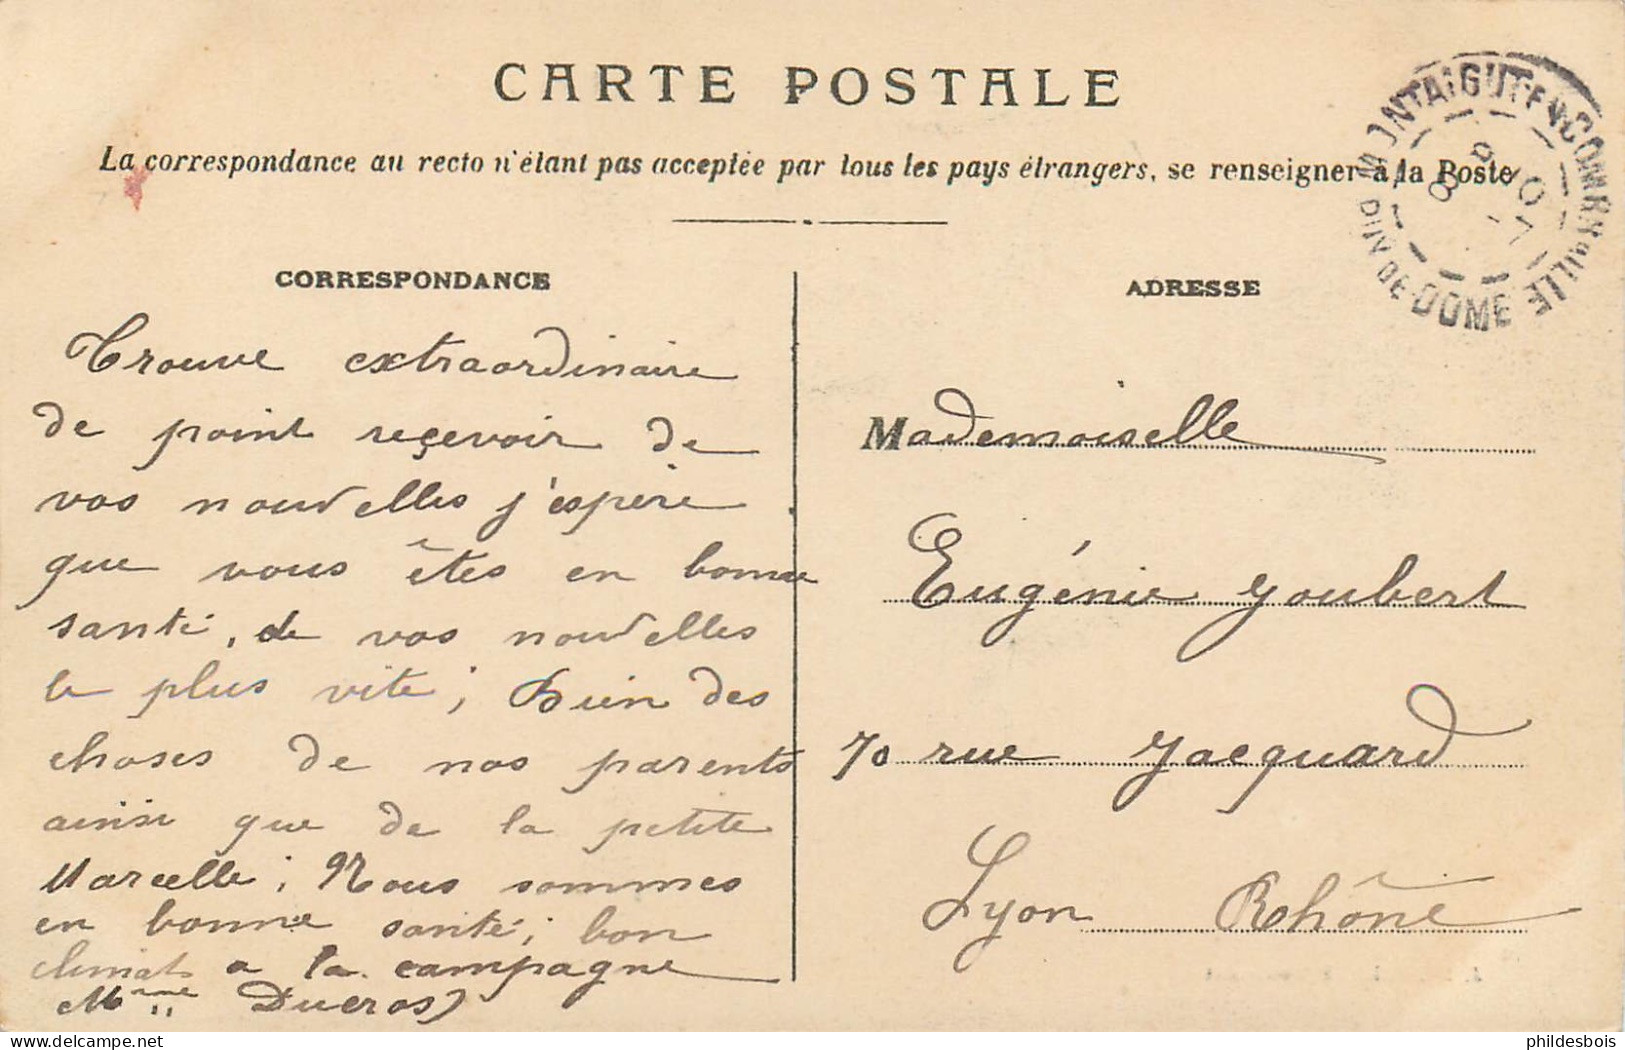 CARTE POSTALE
La correspondance au recto n'étant pas acceptée par tous les pays étrangers, se renseigner à la Poste
MONTAIGUT-EN-COMBRAILLE
PUY-DE-DOME
CORRESPONDANCE
Trouve extraordinaire
de point reçevoir de
vos nouvelles j'espère
que vous êtes en bonne
santé, de vos nouvelles
le plus vite; Bien des
choses de nos parents
ainsi que de la petite
Marcelle; Nous sommes
en bonne santé; bon
climat a la campagne
Mme Ducros
ADRESSE
Mademoiselle
Eugénie Joubert
70 rue Jacquard
Lyon Rhône
phildesbois